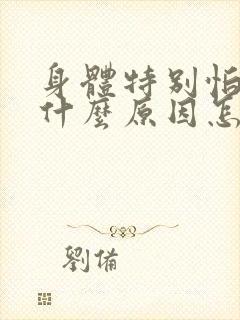 身體特別怕
什麼原因怎
劉備